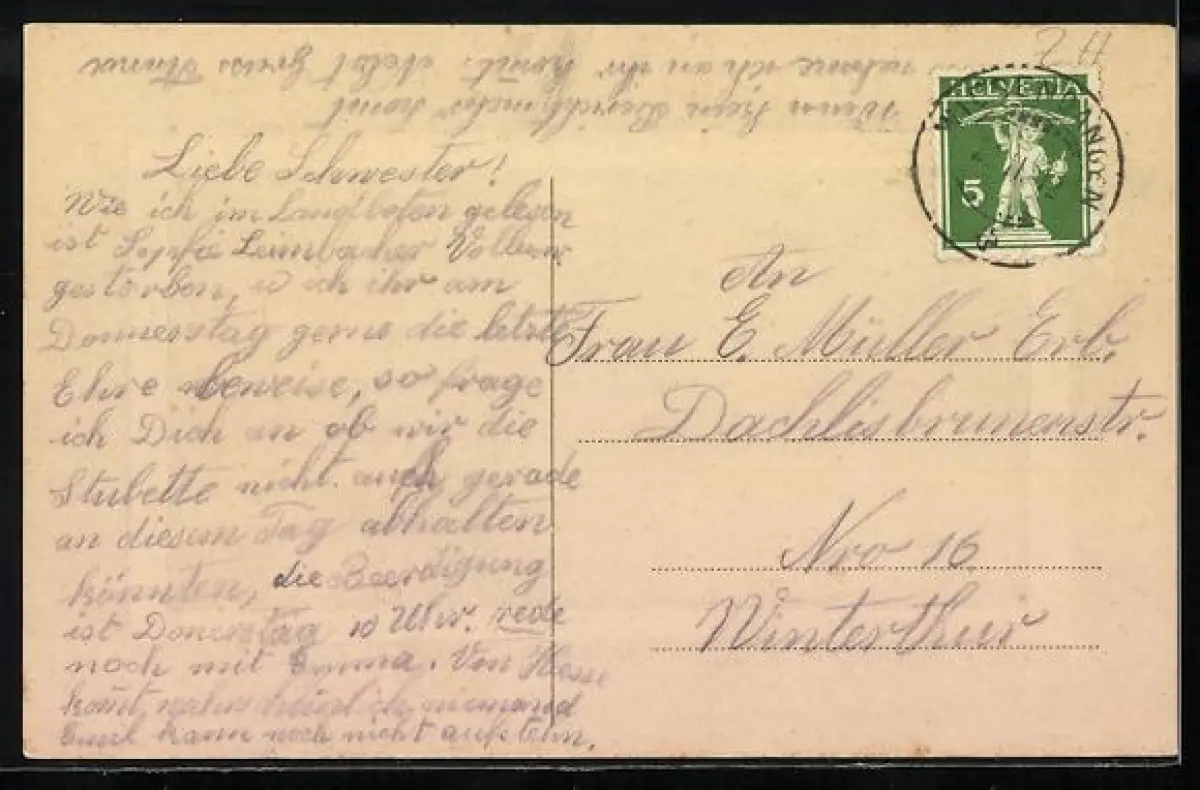 Liebe Schwester!
Wie ich im Landboten gelesen
ist Leimbacher
gestorben, u ich ihr am
Donnerstag gerne die letzte
Ehre beweise, so frage
ich Dich an ob wir die
Stubette nicht auch gerade
an diesem Tag abhalten
könnten, die Beerdigung
ist Donerstag 10 Uhr. rede
noch mit Emma. Von Hesse
komt wahrscheinlich niemand
Emil kann noch nicht aufstehn.
Wenn kein Bericht mehr komt
nehme ich an ihr komt. Nebst Gruss
HELVETIA
5
An
Frau E. Müller Erb.
Dachlisbrunenstr.
Nro 16
Winterthur
ZH